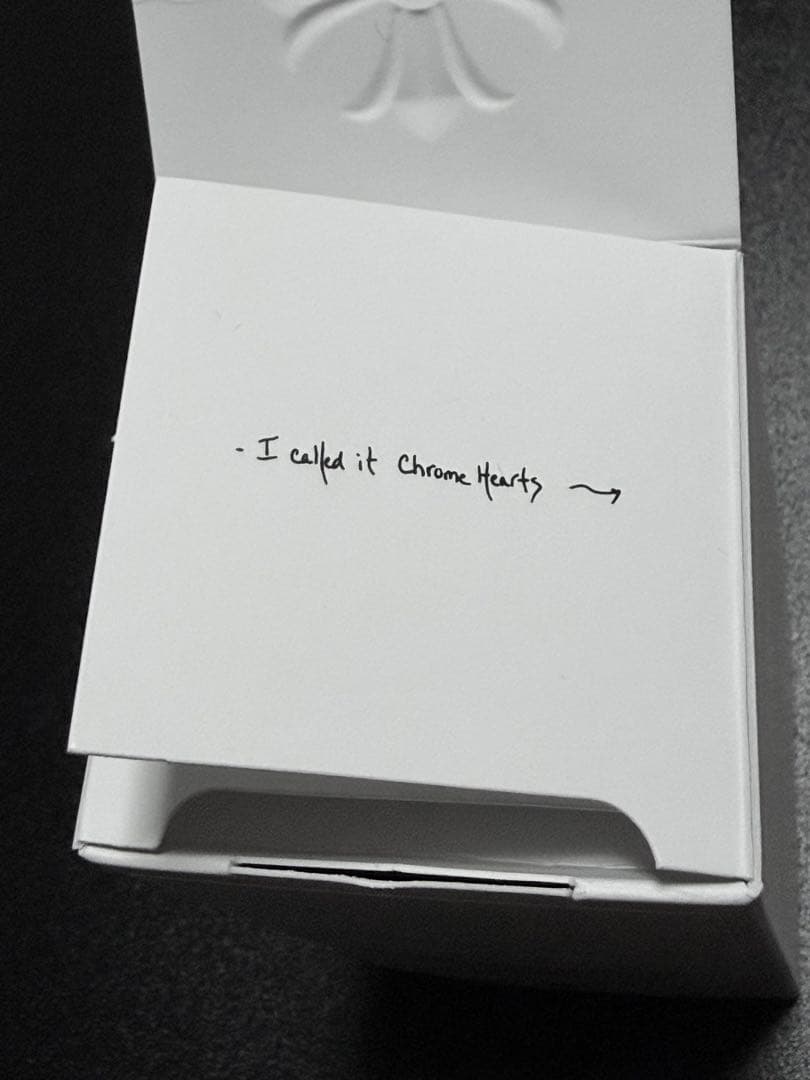 - I called it Chrome Hearts →